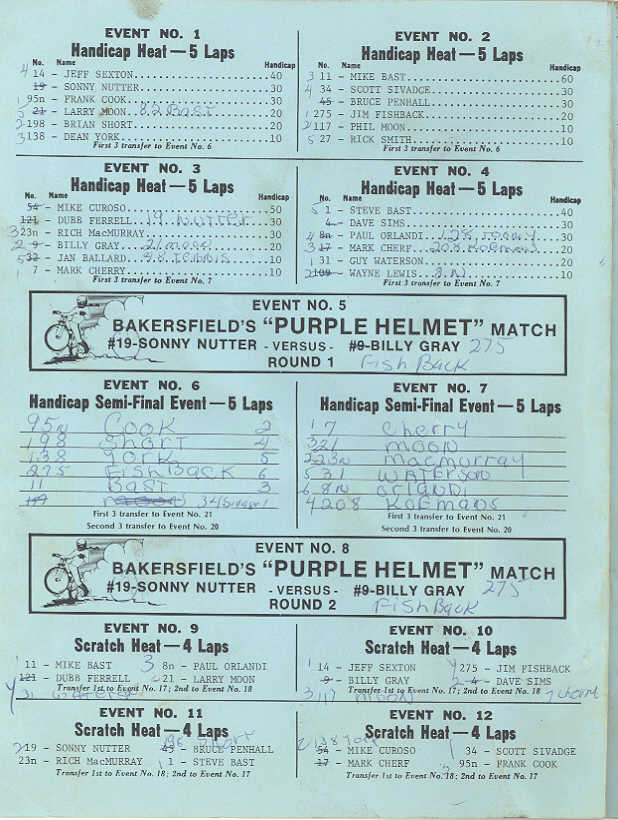 EVENT NO. 1
Handicap Heat — 5 Laps
No. Name Handicap
4 14 - JEFF SEXTON 40
19 - SONNY NUTTER 30
1 95n - FRANK COOK 30
5 21 - LARRY MOON 82 Bast 20
2 198 - BRIAN SHORT 20
3 138 - DEAN YORK 10
First 3 transfer to Event No. 6
EVENT NO. 2
Handicap Heat — 5 Laps
No. Name Handicap
3 11 - MIKE BAST 60
4 34 - SCOTT SIVADGE 30
45 - BRUCE PENHALL 30
1 275 - JIM FISHBACK 20
2 117 - PHIL MOON 10
5 27 - RICK SMITH 10
First 3 transfer to Event No. 6
EVENT NO. 3
Handicap Heat — 5 Laps
No. Name Handicap
54 - MIKE CUROSO 50
121 - DUBB FERRELL 19 Nutter 30
3 23n - RICH MacMURRAY 30
2 9 - BILLY GRAY 21 moon 20
5 32 - JAN BALLARD 20
1 7 - MARK CHERRY 10
First 3 transfer to Event No. 7
EVENT NO. 4
Handicap Heat — 5 Laps
No. Name Handicap
5 1 - STEVE BAST 40
4 - DAVE SIMS 30
4 8n - PAUL ORLANDI 30
3 17 - MARK CHERF 208 Koemans 20
1 31 - GUY WATERSON 20
2 109 - WAYNE LEWIS 8N 10
First 3 transfer to Event No. 7
EVENT NO. 5
BAKERSFIELD'S "PURPLE HELMET" MATCH
#19-SONNY NUTTER - VERSUS - #9-BILLY GRAY 275
ROUND 1 FishBack
EVENT NO. 6
Handicap Semi-Final Event — 5 Laps
95n Cook 2
198 Short 4
138 York 5
275 FishBack 6
11 Bast 3
117 34
First 3 transfer to Event No. 21
Second 3 transfer to Event No. 20
EVENT NO. 7
Handicap Semi-Final Event — 5 Laps
1 7 Cherry
3 21 moon
2 23n macmurray
5 31 Waterson
6 8n orlandi
4 208 Koemans
First 3 transfer to Event No. 21
Second 3 transfer to Event No. 20
EVENT NO. 8
BAKERSFIELD'S "PURPLE HELMET" MATCH
#19-SONNY NUTTER - VERSUS - #9-BILLY GRAY 275
ROUND 2 FishBack
EVENT NO. 9
Scratch Heat — 4 Laps
1 11 - MIKE BAST 3 8n - PAUL ORLANDI
121 - DUBB FERRELL 2 21 - LARRY MOON
Transfer 1st to Event No. 17; 2nd to Event No. 18
4 31 Waterson
EVENT NO. 10
Scratch Heat — 4 Laps
1 14 - JEFF SEXTON 4 275 - JIM FISHBACK
9 - BILLY GRAY 2 4 - DAVE SIMS
Transfer 1st to Event No. 17; 2nd to Event No. 18
3 117 moon 7 cherry
EVENT NO. 11
Scratch Heat — 4 Laps
198 Short
2 19 - SONNY NUTTER 45 - BRUCE PENHALL
23n - RICH MacMURRAY 1 1 - STEVE BAST
Transfer 1st to Event No. 18; 2nd to Event No. 17
EVENT NO. 12
Scratch Heat — 4 Laps
2 138 York
54 - MIKE CUROSO 1 34 - SCOTT SIVADGE
17 - MARK CHERF 3 95n - FRANK COOK
Transfer 1st to Event No. 18; 2nd to Event No. 17